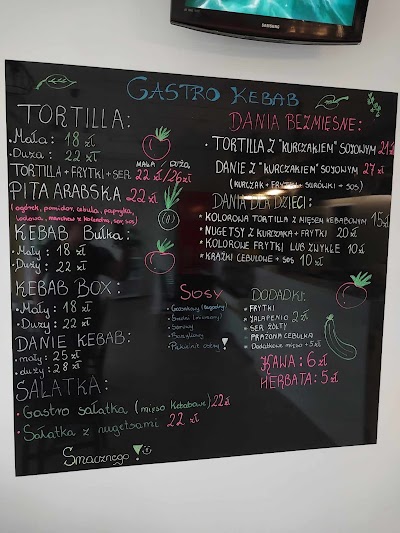 SAMSUNG
GASTRO KEBAB
TORTILLA:
• Mała: 18 zł
• Duża: 22 zł
MAŁA / DUŻA
TORTILLA + FRYTKI + SER 22 zł/26 zł
PITA ARABSKA 22 zł
(ogórek, pomidor, cebula, papryka,
lodowa, sos)
KEBAB BUŁKA:
• MAŁY: 18 zł
• DUŻY: 22 zł
KEBAB BOX:
• MAŁY: 18 zł
• DUŻY: 22 zł
DANIE KEBAB:
• MAŁY: 25 zł
• DUŻY: 28 zł
SAŁATKA:
• Gastro sałatka (mięso Kebabowe) 22 zł
• Sałatka z nuggetsami 22 zł
Smacznego
SOSY
• Czosnkowy (łagodny)
• Średni (mieszany)
• Serowy
• Piekielnie ostry
DANIA BEZMIĘSNE:
• TORTILLA Z "KURCZAKIEM" SOJOWYM 21 zł
DANIE Z "KURCZAKIEM" SOJOWYM 27 zł
(KURCZAK + FRYTKI + SURÓWKI + SOS)
DANIA DLA DZIECI:
• KOLOROWA TORTILLA Z MIĘSEM KEBABOWYM 15 zł
• NUGETSY Z KURCZAKA + FRYTKI 20 zł
• KOLOROWE FRYTKI LUB ZWYKŁE 10 zł
• KRĄŻKI CEBULOWE + SOS 10 zł
DODADKI:
• FRYTKI
• JALAPENIO 2 zł
• SER ŻÓŁTY
• PRAŻONA CEBULKA
• Dodatkowe mięso + 5 zł
KAWA: 6 zł
HERBATA: 5 zł